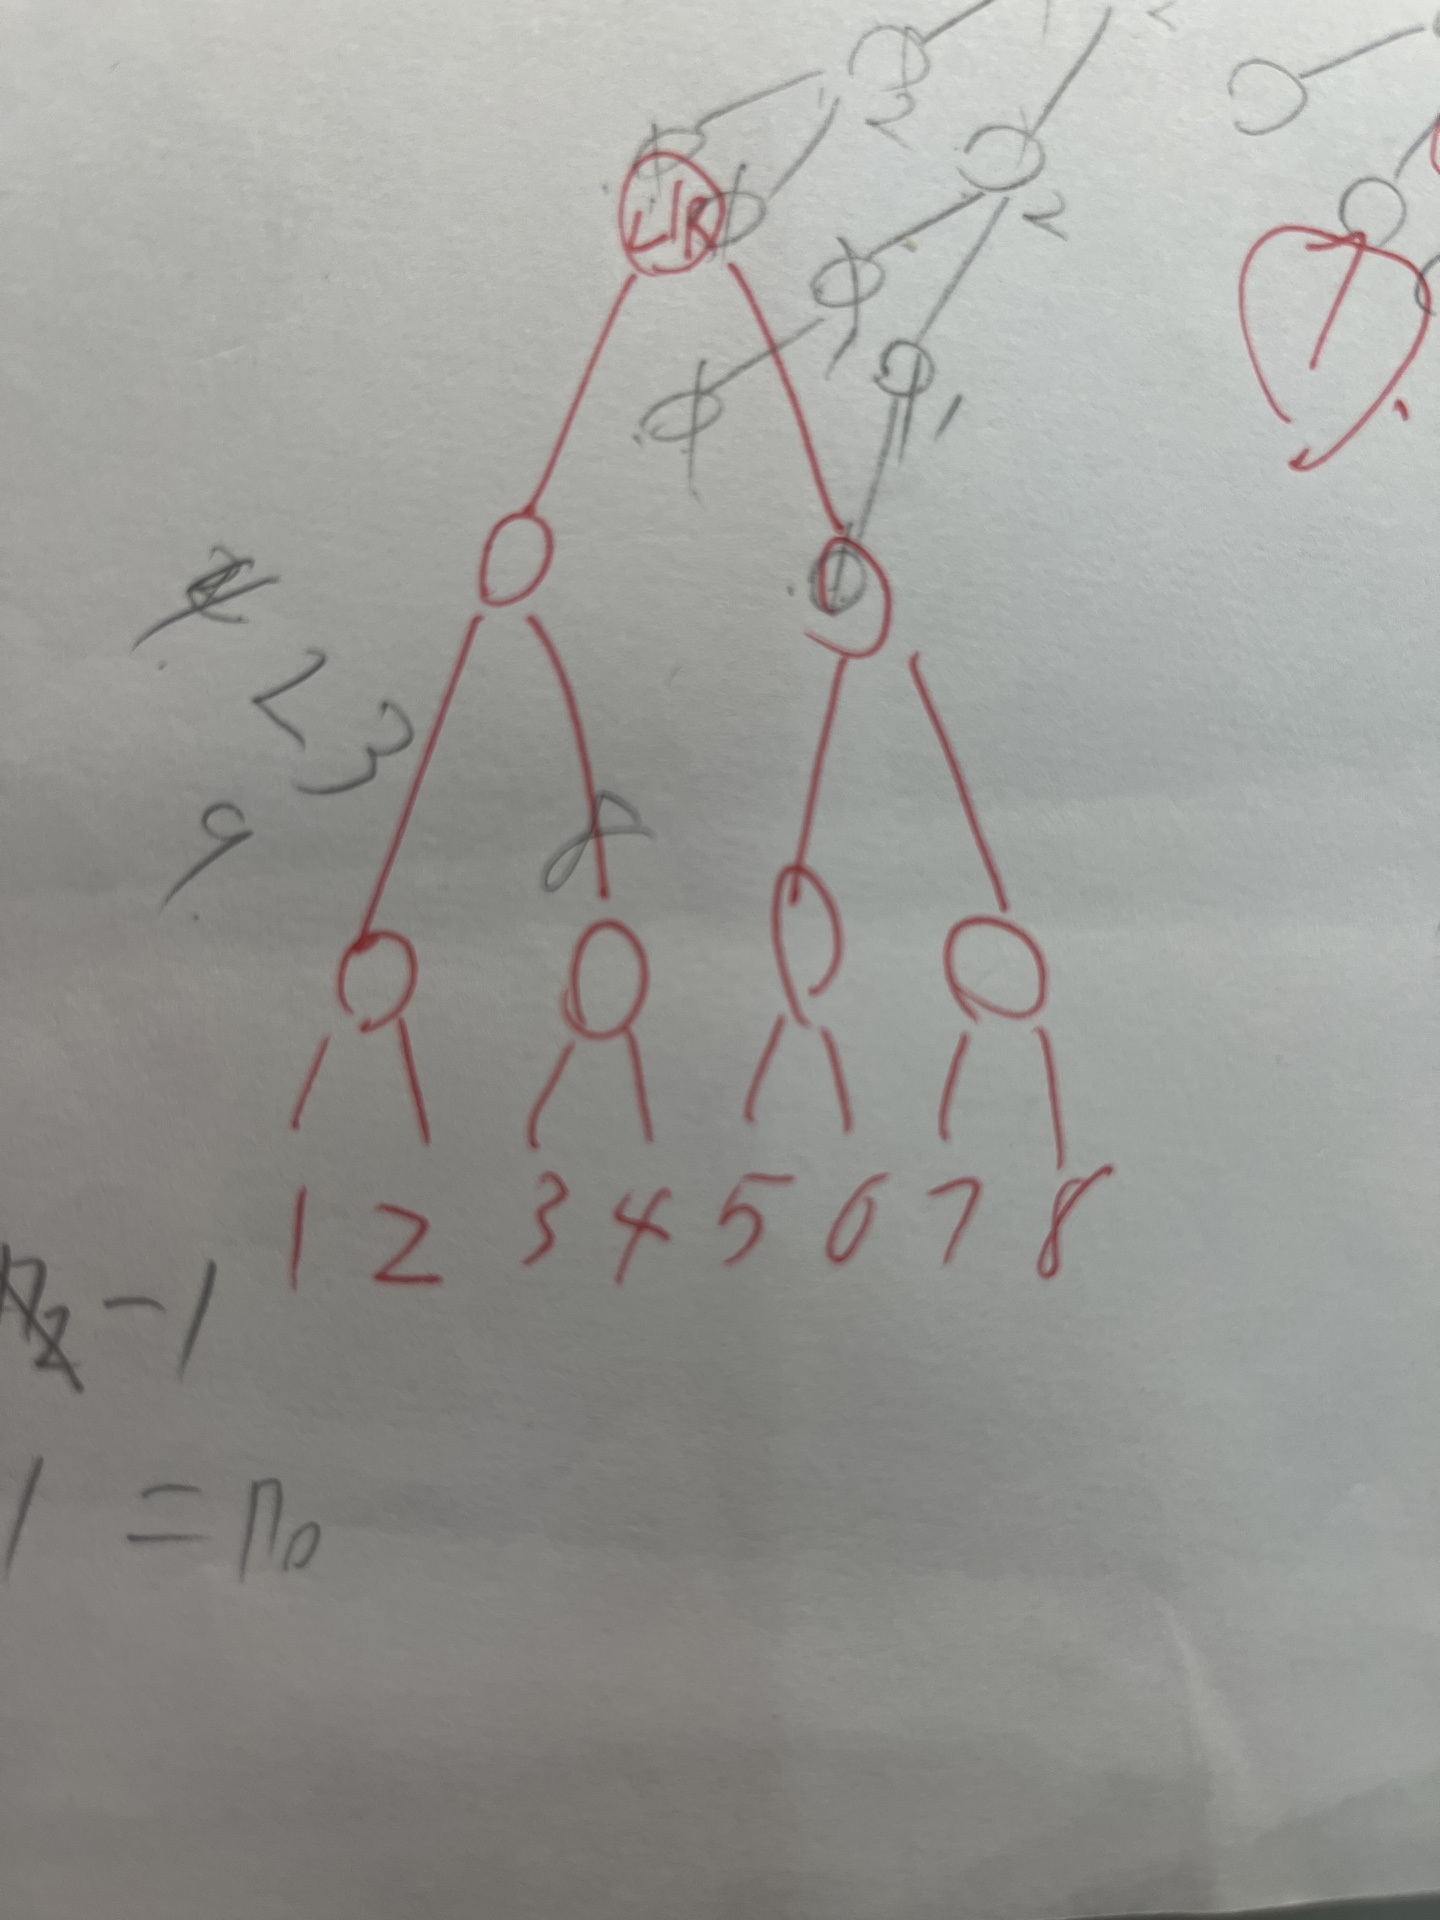 2
L/R
2
1
1
<3
9
8
1 2 3 4 5 6 7 8
n₂-1
1 = n₀